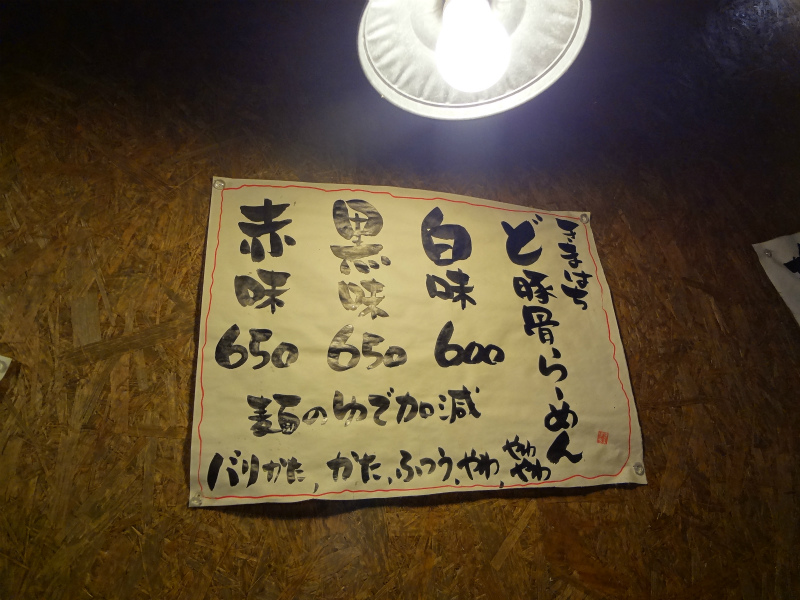 ど豚骨らーめん
白味 600
黒味 650
赤味 650
麺のゆで加減
バリかた、かた、ふつう、やわ、やわやわ